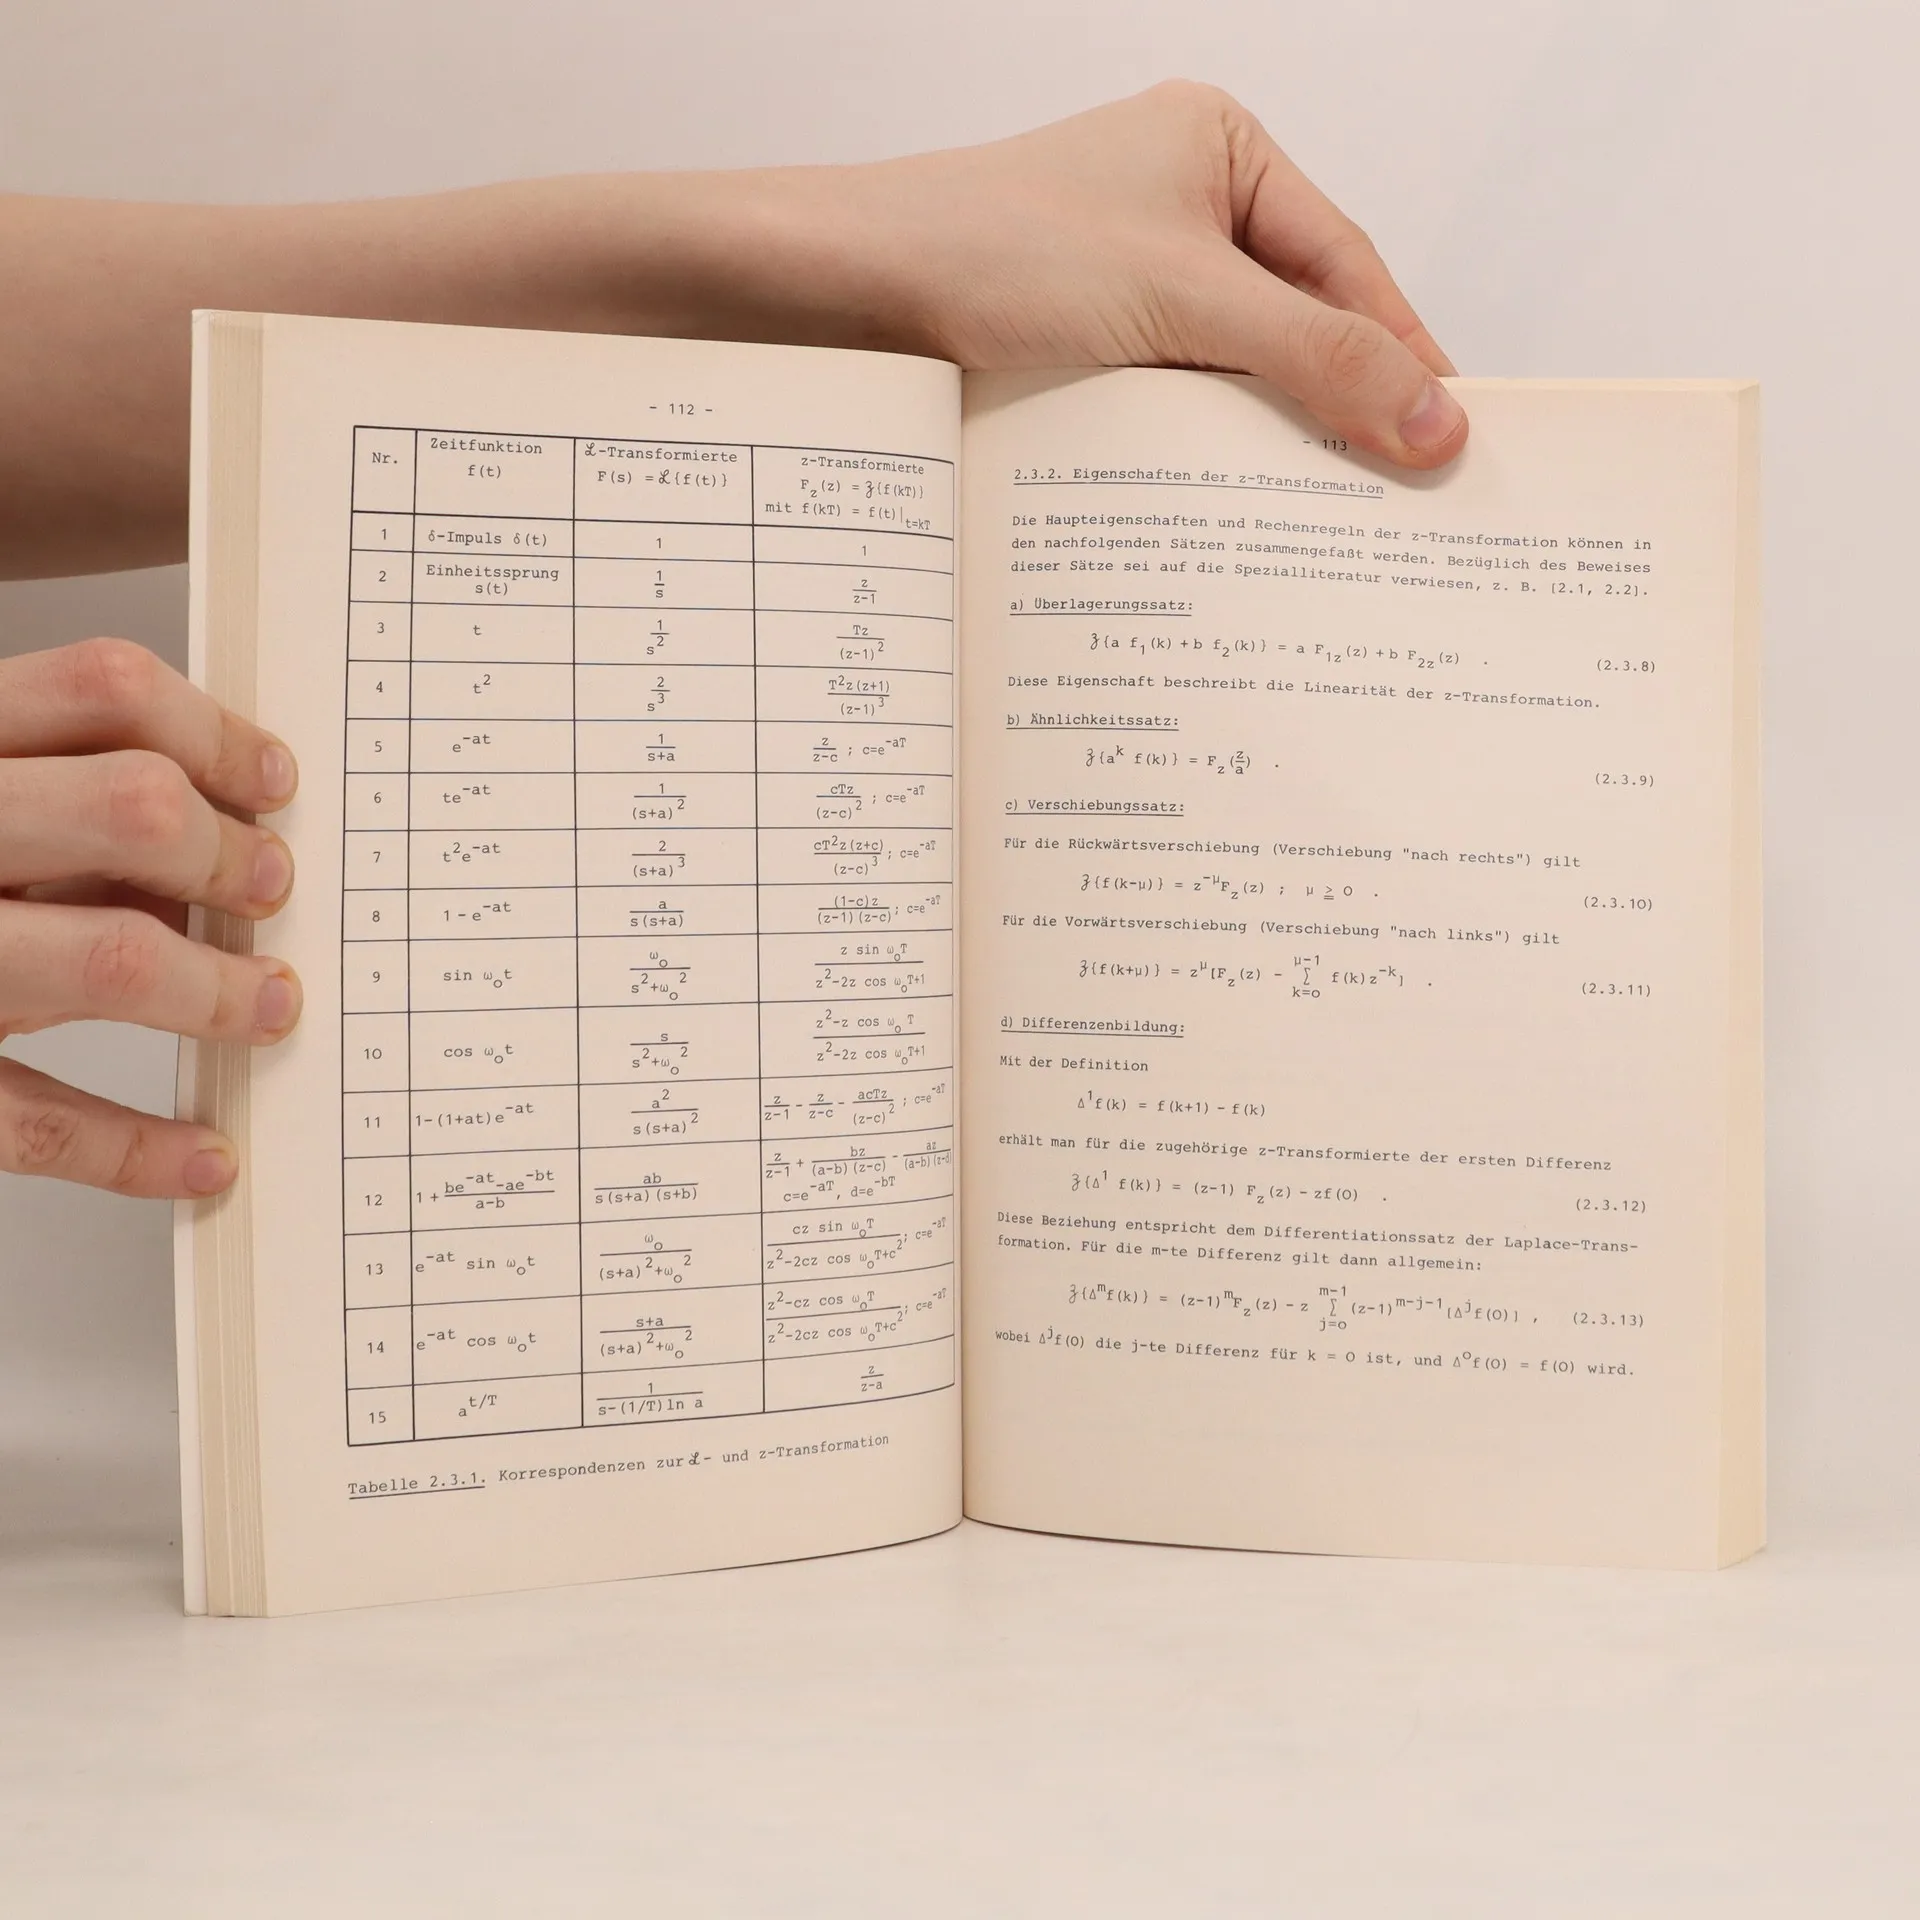 - 112 -
Nr. | Zeitfunktion f(t) | ℒ-Transformierte F(s) = ℒ{f(t)} | z-Transformierte F_z(z) = ʒ{f(kT)} mit f(kT) = f(t)|_{t=kT}
1 | δ-Impuls δ(t) | 1 | 1
2 | Einheitssprung s(t) | 1/s | z/(z-1)
3 | t | 1/s^2 | Tz/(z-1)^2
4 | t^2 | 2/s^3 | T^2z(z+1)/(z-1)^3
5 | e^{-at} | 1/(s+a) | z/(z-c) ; c=e^{-aT}
6 | te^{-at} | 1/(s+a)^2 | cTz/(z-c)^2 ; c=e^{-aT}
7 | t^2e^{-at} | 2/(s+a)^3 | cT^2z(z+c)/(z-c)^3 ; c=e^{-aT}
8 | 1-e^{-at} | a/(s(s+a)) | (1-c)z/((z-1)(z-c)) ; c=e^{-aT}
9 | sin ω_ot | ω_o/(s^2+ω_o^2) | z sin ω_oT/(z^2-2z cos ω_oT+1)
10 | cos ω_ot | s/(s^2+ω_o^2) | (z^2-z cos ω_oT)/(z^2-2z cos ω_oT+1)
11 | 1-(1+at)e^{-at} | a^2/(s(s+a)^2) | z/(z-1) - z/(z-c) - acTz/(z-c)^2 ; c=e^{-aT}
12 | 1+(be^{-at}-ae^{-bt})/(a-b) | ab/(s(s+a)(s+b)) | z/(z-1) + bz/((a-b)(z-c)) - az/((a-b)(z-d)) c=e^{-aT}, d=e^{-bT}
13 | e^{-at} sin ω_ot | ω_o/((s+a)^2+ω_o^2) | cz sin ω_oT/(z^2-2cz cos ω_oT+c^2) ; c=e^{-aT}
14 | e^{-at} cos ω_ot | (s+a)/((s+a)^2+ω_o^2) | (z^2-cz cos ω_oT)/(z^2-2cz cos ω_oT+c^2) ; c=e^{-aT}
15 | a^{t/T} | 1/(s-(1/T)ln a) | z/(z-a)
Tabelle 2.3.1. Korrespondenzen zur ℒ- und z-Transformation
- 113
2.3.2. Eigenschaften der z-Transformation
Die Haupteigenschaften und Rechenregeln der z-Transformation können in
den nachfolgenden Sätzen zusammengefaßt werden. Bezüglich des Beweises
dieser Sätze sei auf die Spezialliteratur verwiesen, z. B. [2.1, 2.2].
a) Überlagerungssatz:
ʒ{a f_1(k) + b f_2(k)} = a F_{1z}(z) + b F_{2z}(z) . (2.3.8)
Diese Eigenschaft beschreibt die Linearität der z-Transformation.
b) Ähnlichkeitssatz:
ʒ{a^k f(k)} = F_z(z/a) . (2.3.9)
c) Verschiebungssatz:
Für die Rückwärtsverschiebung (Verschiebung "nach rechts") gilt
ʒ{f(k-μ)} = z^{-μ}F_z(z) ; μ ≥ 0 . (2.3.10)
Für die Vorwärtsverschiebung (Verschiebung "nach links") gilt
ʒ{f(k+μ)} = z^μ[F_z(z) - ∑_{k=o}^{μ-1} f(k)z^{-k}] . (2.3.11)
d) Differenzenbildung:
Mit der Definition
Δ^1f(k) = f(k+1) - f(k)
erhält man für die zugehörige z-Transformierte der ersten Differenz
ʒ{Δ^1 f(k)} = (z-1) F_z(z) - zf(0) . (2.3.12)
Diese Beziehung entspricht dem Differentiationssatz der Laplace-Trans-
formation. Für die m-te Differenz gilt dann allgemein:
ʒ{Δ^mf(k)} = (z-1)^mF_z(z) - z ∑_{j=o}^{m-1} (z-1)^{m-j-1}[Δ^jf(0)] , (2.3.13)
wobei Δ^jf(0) die j-te Differenz für k = 0 ist, und Δ^of(0) = f(0) wird.